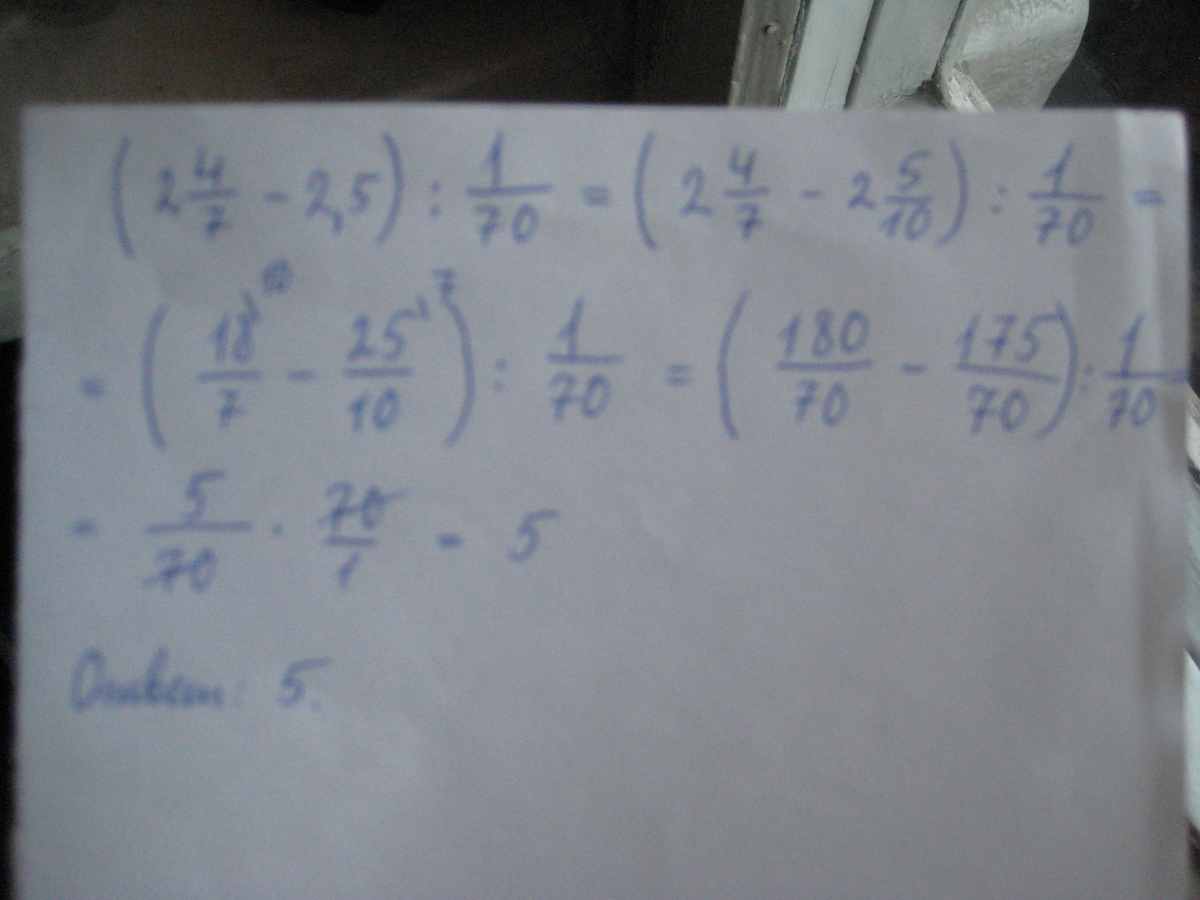 (2 4/7 - 2,5) : 1/70 = (2 4/7 - 2 5/10) : 1/70 =
= (18/7 ^10 - 25/10 ^7) : 1/70 = (180/70 - 175/70) : 1/70
= 5/70 · 70/1 = 5
Ответ: 5.